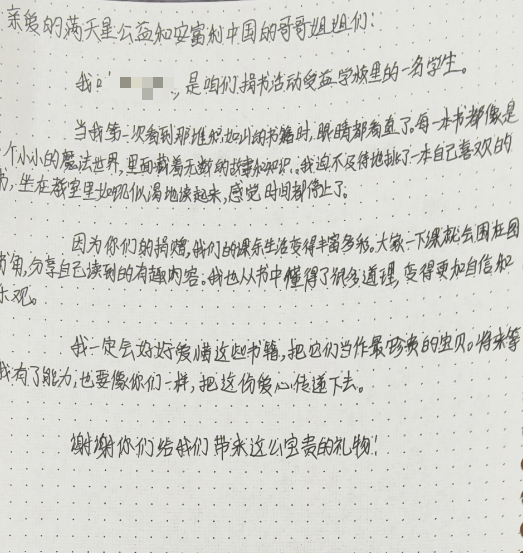 亲爱的满天星公益和安富利中国的哥哥姐姐们:
我叫
,是咱们捐书活动受益学校里的一名学生。
当我第一次看到那堆积如山的书籍时,眼睛都看直了。每一本书都像是
个小小的魔法世界,里面藏着无数的故事和知识。我迫不及待地挑了一本自己喜欢的
书,坐在教室里如饥似渴地读起来,感觉时间都停止了。
因为你们的捐赠,我们的课余生活变得丰富多彩。大家一下课就会围在图
书角,分享自己读到的有趣内容。我也从书中懂得了很多道理,变得更加自信和
乐观。
我一定会好好爱惜这些书籍,把它们当作最珍贵的宝贝。将来等
我有了能力,也要像你们一样,把这份爱心传递下去。
谢谢你们给我们带来这么宝贵的礼物!